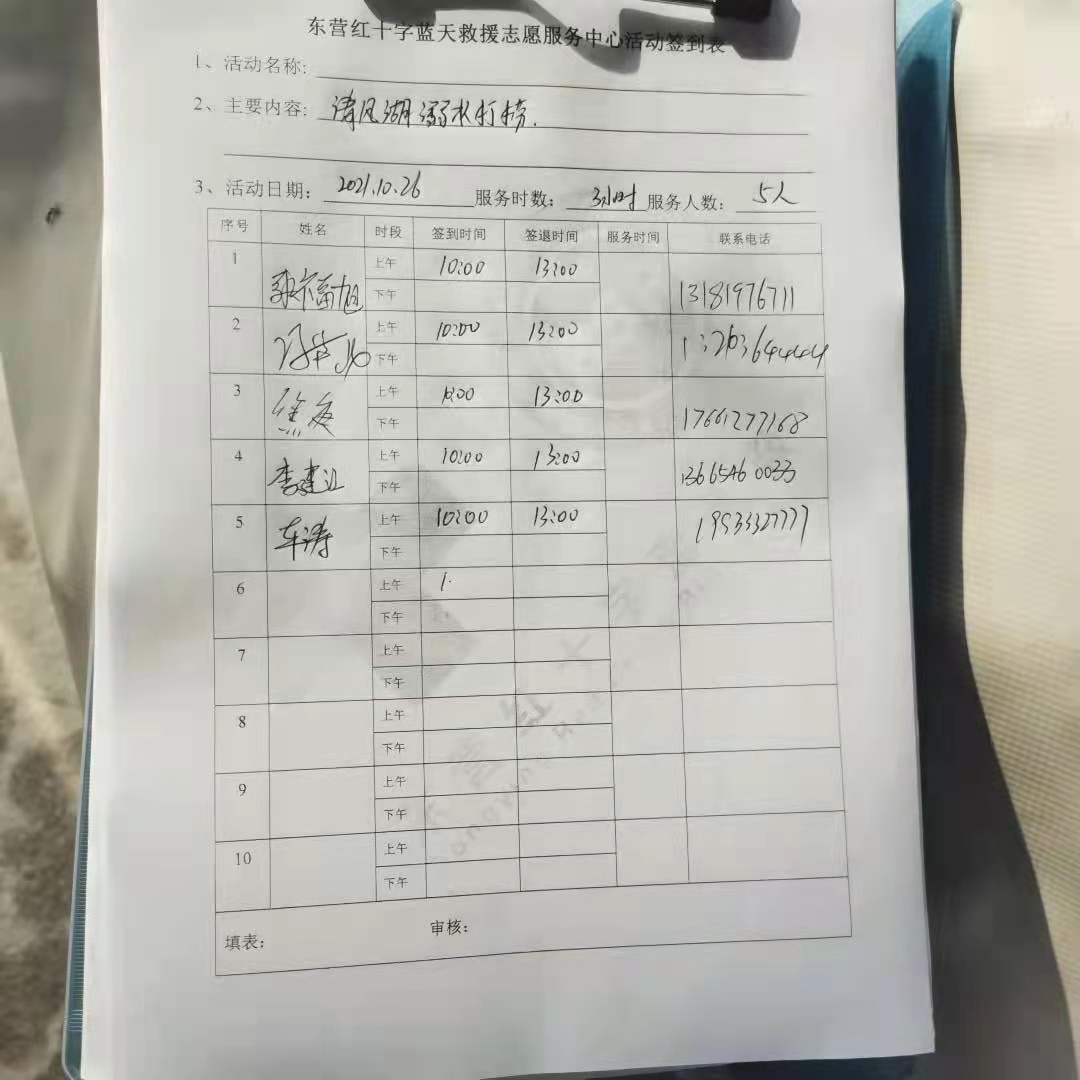 东营红十字蓝天救援志愿服务中心活动签到表
1、活动名称:
2、主要内容: 清风湖溺水打捞.
3、活动日期: 2021.10.26 服务时数: 3小时 服务人数: 5人
序号 姓名 时段 签到时间 签退时间 服务时间 联系电话
1 上午 10:00 13:00
下午 13181976711
2 上午 10:00 13:00
下午
3 焦 上午 10:00 13:00
下午 17661277168
4 李建 上午 10:00 13:00
下午 13665460033
5 车涛 上午 10:00 13:00 19533327777
下午
6 上午 1.
下午
7 上午
下午
8 上午
下午
9 上午
下午
10 上午
下午
填表: 审核: